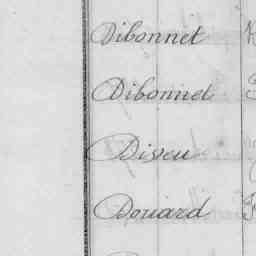 Dibonnet
Dibonnet
Diveu
Douard